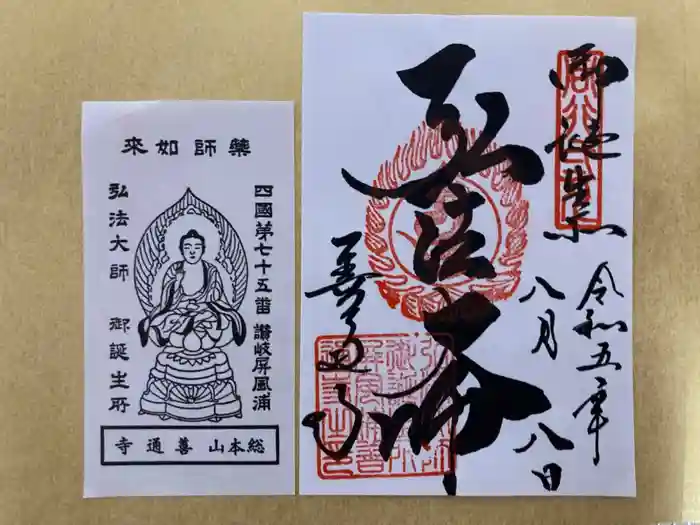 藥師如來
四國第七十五番 讃岐屏風浦
弘法大師 御誕生所
総本山 善通寺
御誕生所
令和五年
八月
八日
弘法大師
善通寺